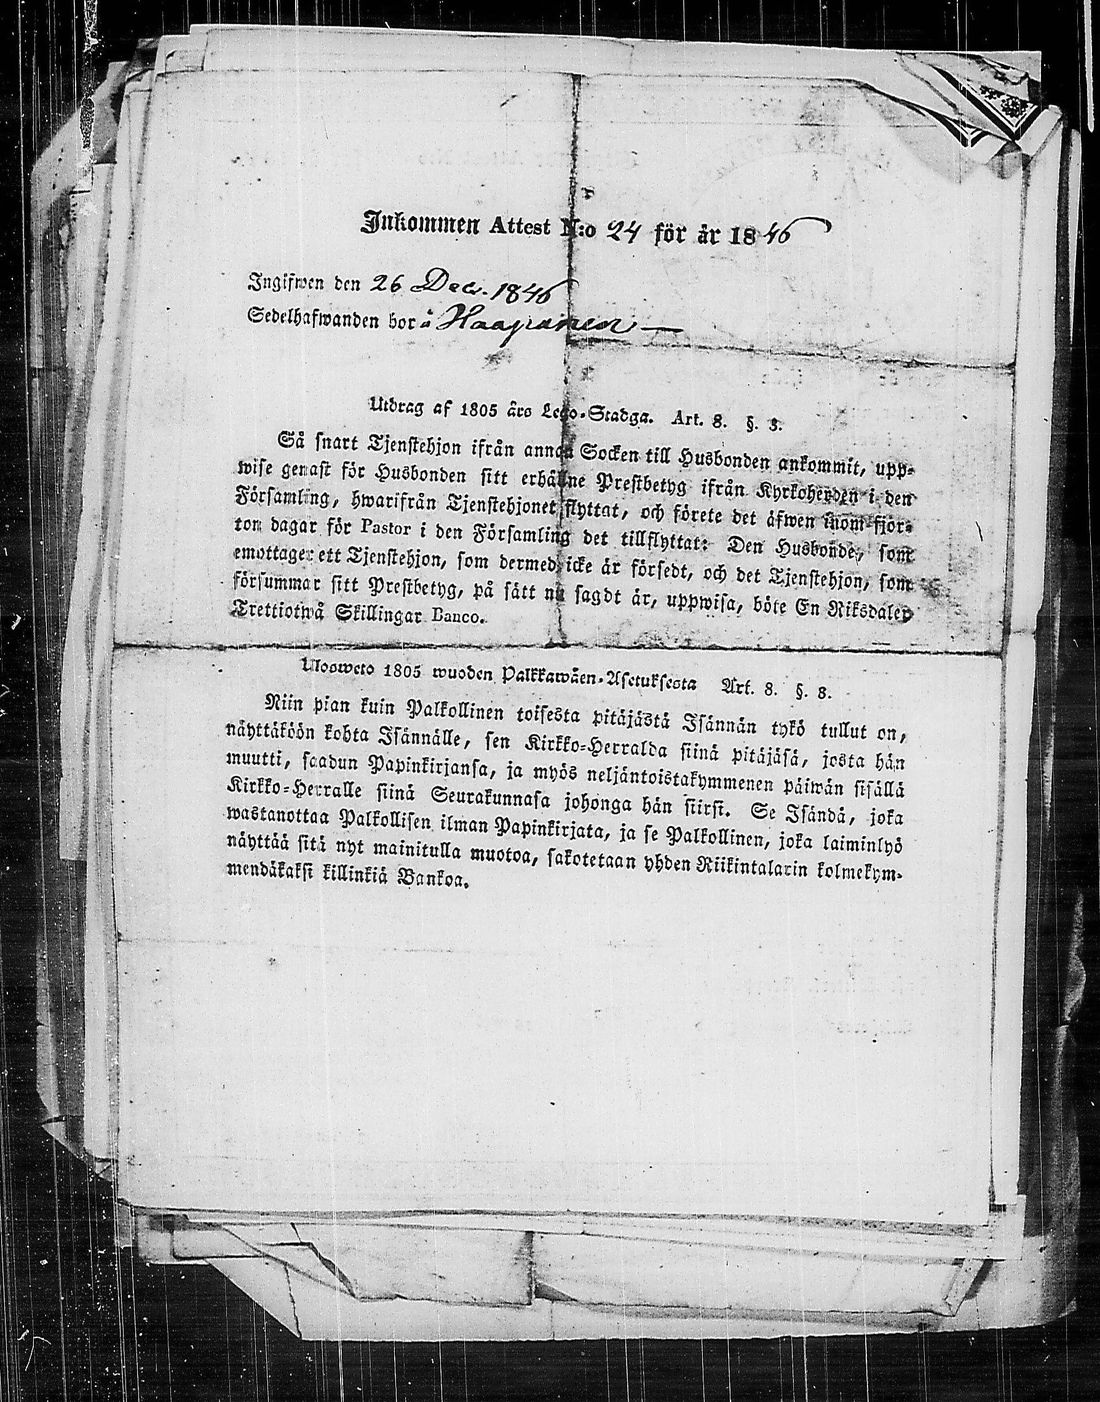 Inkommen Attest N:o 24 för år 1846
Ingifwen den 26 Decr. 1846
Sedelhafwanden bor å Haapanen —
Utdrag af 1805 års Lego-Stadga. Art. 8. §. 3.
Så snart Tjenstehjon ifrån annan Socken till Husbonden ankommit, upp-
wise genast för Husbonden sitt erhållne Prestbetyg ifrån Kyrkoherden i den
Församling, hwarifrån Tjenstehjonet flyttat, och förete det äfwen inom fjor-
ton dagar för Pastor i den Församling det tillflyttat: Den Husbonde, som
emottager ett Tjenstehjon, som dermed icke är försedt, och det Tjenstehjon, som
försummar sitt Prestbetyg, på sätt nu sagdt är, uppwisa, böte En Riksdaler
Trettiotwå Skillingar Banco.
Ulosweto 1805 wuoden Palkkawäen-Asetuksesta Art. 8. §. 3.
Niin pian kuin Palkollinen toisesta pitäjästä Isännän tykö tullut on,
näyttäköön kohta Isännälle, sen Kirkko-Herralda siinä pitäjäsä, josta hän
muutti, saadun Papinkirjansa, ja myös neljäntoistakymmenen päiwän sisällä
Kirkko-Herralle siinä Seurakunnasa johonga hän siirsi. Se Isändä, joka
wastanottaa Palkollisen ilman Papinkirjata, ja se Palkollinen, joka laiminlyö
näyttää sitä nyt mainitulla muotoa, sakotetaan yhden Riikintalarin kolmekym-
mendäkaksi killinkiä Bankoa.